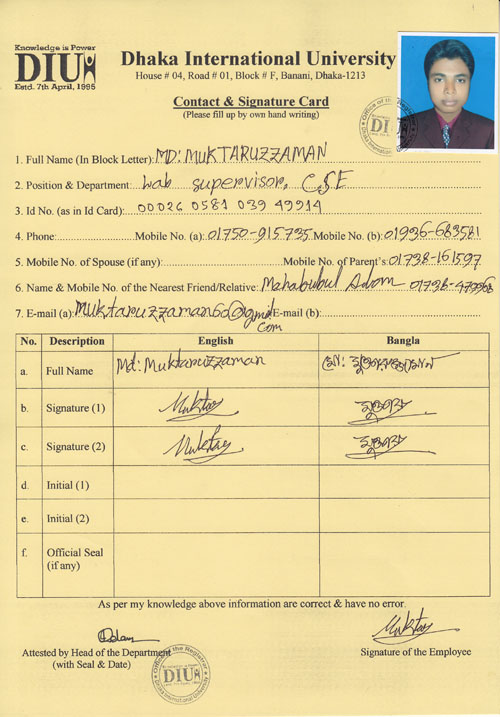 Knowledge is Power
DIU
Estd. 7th April, 1995
Dhaka International University
House # 04, Road # 01, Block # F, Banani, Dhaka-1213
Contact & Signature Card
(Please fill up by own hand writing)
Office of the Registrar
DIU
Dhaka International University
1. Full Name (In Block Letter): MD: MUKTARUZZAMAN
2. Position & Department: Lab supervisor, CSE
3. Id No. (as in Id Card): 00026 0581 039 49914
4. Phone: Mobile No. (a): 01750-915735 Mobile No. (b): 01936-683581
5. Mobile No. of Spouse (if any): Mobile No. of Parent's: 01738-161597
6. Name & Mobile No. of the Nearest Friend/Relative: Mahabubul Adom
7. E-mail (a): muktaruzzaman60@gmail E-mail (b):
com
No. Description English Bangla
a. Full Name Md: Muktaruzzaman মো: মুক্তারুজ্জামান
b. Signature (1) Muktar
c. Signature (2) Muktar
d. Initial (1)
e. Initial (2)
f. Official Seal
(if any)
As per my knowledge above information are correct & have no error.
Muktar
Attested by Head of the Department
(with Seal & Date)
Signature of the Employee
Office of the Registrar
Knowledge is Power
DIU
Dhaka International University